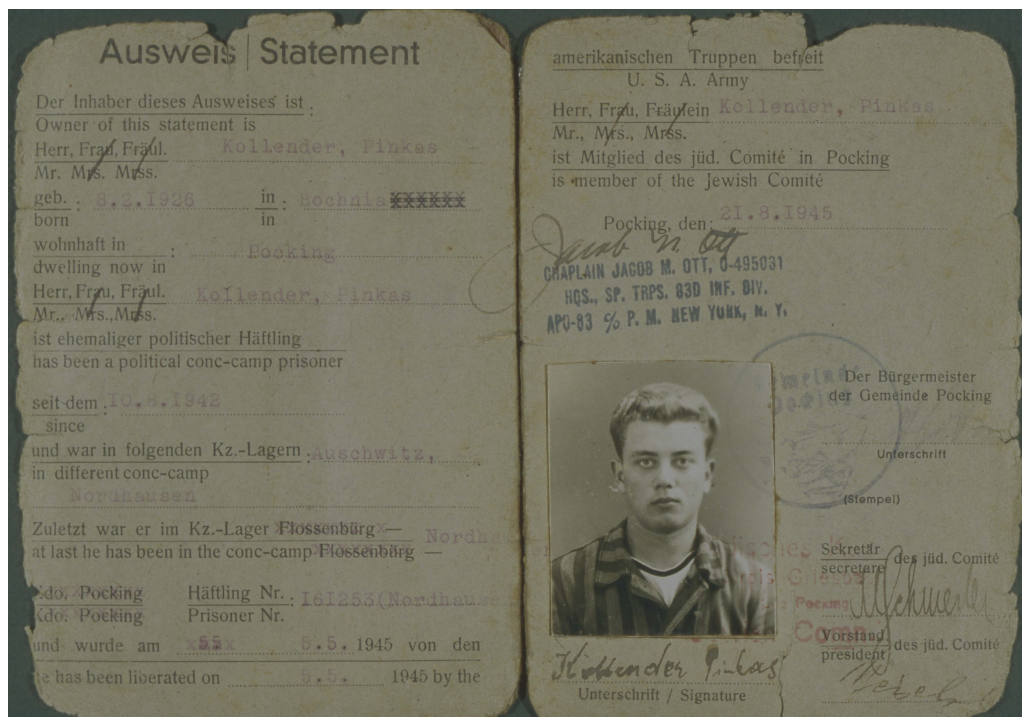 Ausweis | Statement
Der Inhaber dieses Ausweises ist :
Owner of this statement is
Herr, Frau, Fräul. Kollender, Pinkas
Mr. Mrs. Mrss.
geb. : 8.2.I926 in : Bochnia xxxxxx
born in
wohnhaft in : Pocking
dwelling now in
Herr, Frau, Fräul. Kollender, Pinkas
Mr., Mrs., Mrss.
ist ehemaliger politischer Häftling
has been a political conc-camp prisoner
seit dem : IO.8.I942
since
und war in folgenden Kz.-Lagern : Auschwitz,
in different conc-camp
Nordhausen
Zuletzt war er im Kz.-Lager Flossenbürg —
at last he has been in the conc-camp Flossenbürg —
Kdo. Pocking Häftling Nr. : I6I253(Nordhause
Kdo. Pocking Prisoner Nr.
und wurde am 5.5. 1945 von den
he has been liberated on 5.5. 1945 by the
amerikanischen Truppen befreit
U. S. A. Army
Herr, Frau, Fräulein Kollender, Pinkas
Mr., Mrs., Mrss.
ist Mitglied des jüd. Comité in Pocking
is member of the Jewish Comité
Pocking, den: 2I.8.I945
Jacob M. Ott
CHAPLAIN JACOB M. OTT, O-495031
HQS., SP. TRPS. 83D INF. DIV.
APO-83 c/o P. M. NEW YORK, N. Y.
Gemeinde
Pocking
Der Bürgermeister
der Gemeinde Pocking
Unterschrift
(Stempel)
Sekretär
secretare des jüd. Comité
Pocking
Camp
Vorstand
president des jüd. Comité
Kollender Pinkas
Unterschrift / Signature